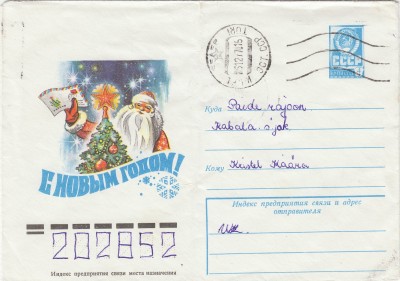 СССР
Куда Paide rajoon
Kabala sjak
Кому Kristel Käära
С НОВЫМ ГОДОМ!
Индекс предприятия связи и адрес отправителя
202852
Индекс предприятия связи места назначения